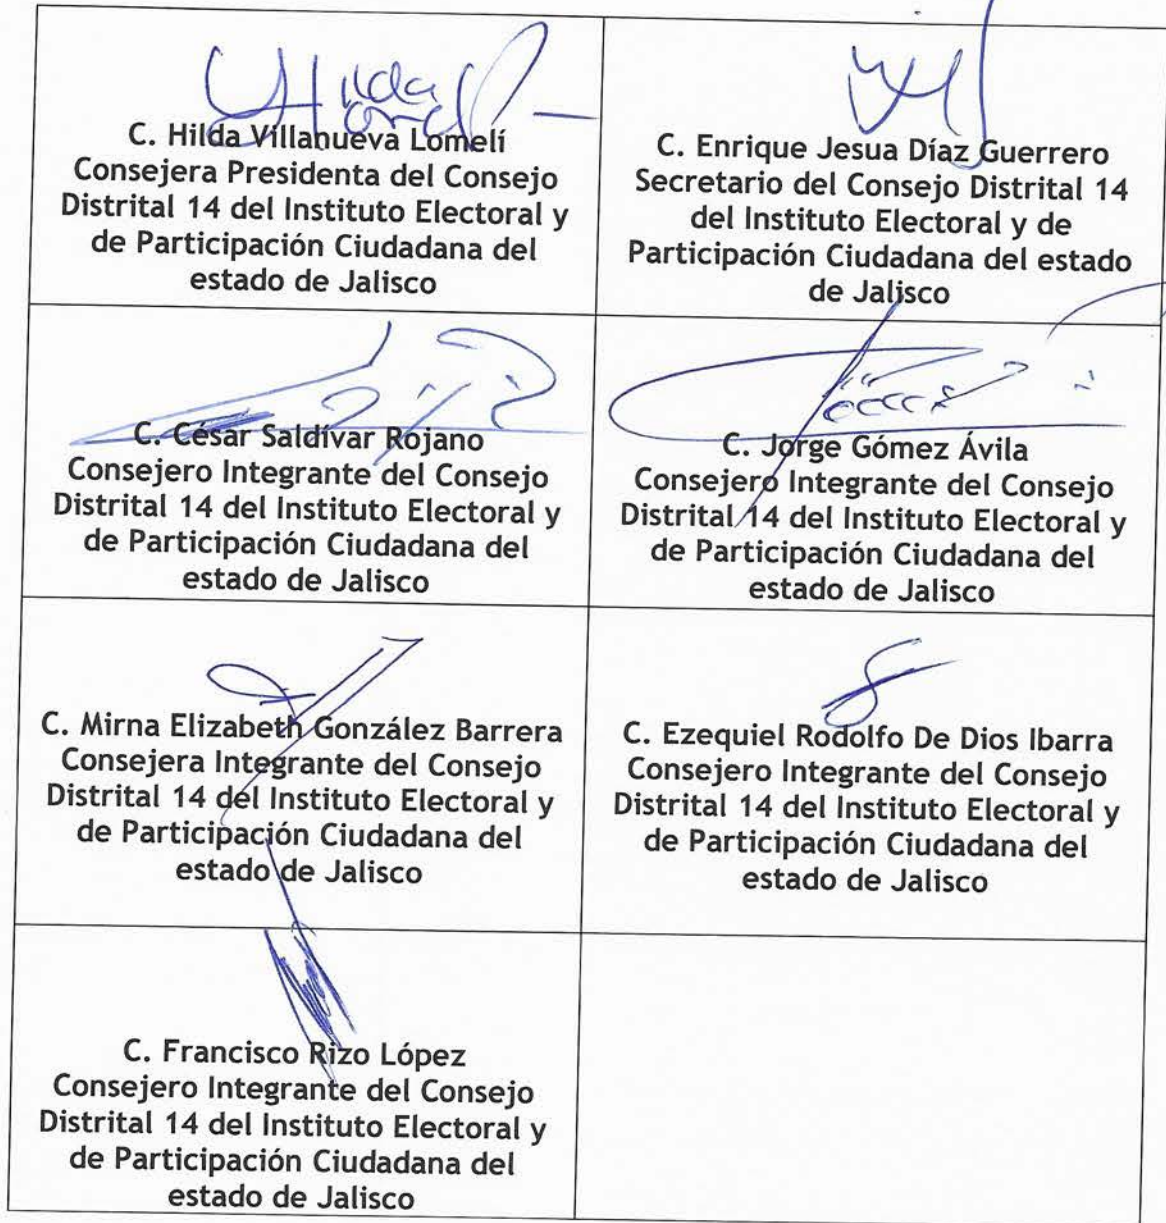 C. Hilda Villanueva Lomelí
Consejera Presidenta del Consejo
Distrital 14 del Instituto Electoral y
de Participación Ciudadana del
estado de Jalisco
C. Enrique Jesua Díaz Guerrero
Secretario del Consejo Distrital 14
del Instituto Electoral y de
Participación Ciudadana del estado
de Jalisco
C. César Saldívar Rojano
Consejero Integrante del Consejo
Distrital 14 del Instituto Electoral y
de Participación Ciudadana del
estado de Jalisco
C. Jorge Gómez Ávila
Consejero Integrante del Consejo
Distrital 14 del Instituto Electoral y
de Participación Ciudadana del
estado de Jalisco
C. Mirna Elizabeth González Barrera
Consejera Integrante del Consejo
Distrital 14 del Instituto Electoral y
de Participación Ciudadana del
estado de Jalisco
C. Ezequiel Rodolfo De Dios Ibarra
Consejero Integrante del Consejo
Distrital 14 del Instituto Electoral y
de Participación Ciudadana del
estado de Jalisco
C. Francisco Rizo López
Consejero Integrante del Consejo
Distrital 14 del Instituto Electoral y
de Participación Ciudadana del
estado de Jalisco